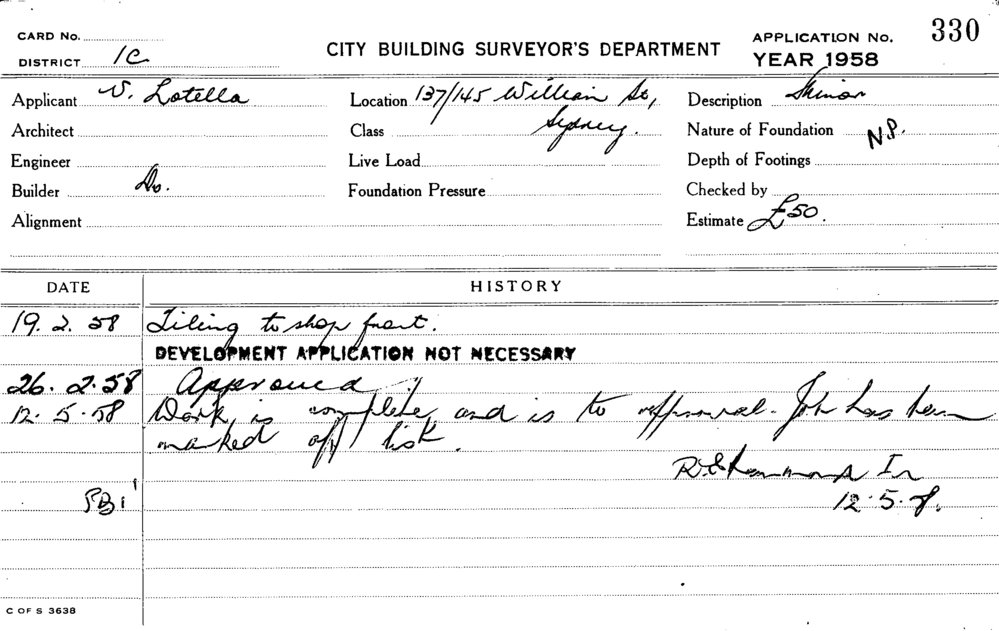 CARD No.
DISTRICT 1C
CITY BUILDING SURVEYOR'S DEPARTMENT
APPLICATION No. 330
YEAR 1958
Applicant V. Lotella
Location 137/145 William St,
Sydney.
Description Minor
Architect
Class
Nature of Foundation N.P.
Engineer
Live Load
Depth of Footings
Builder Do.
Foundation Pressure
Checked by
Alignment
Estimate £50.
DATE HISTORY
19. 2. 58 Tiling to shop front.
DEVELOPMENT APPLICATION NOT NECESSARY
26. 2. 58 Approved
12. 5. 58 Work is complete and is to approval. Job has been
marked off list.
In
12. 5. 8.
C OF S 3638